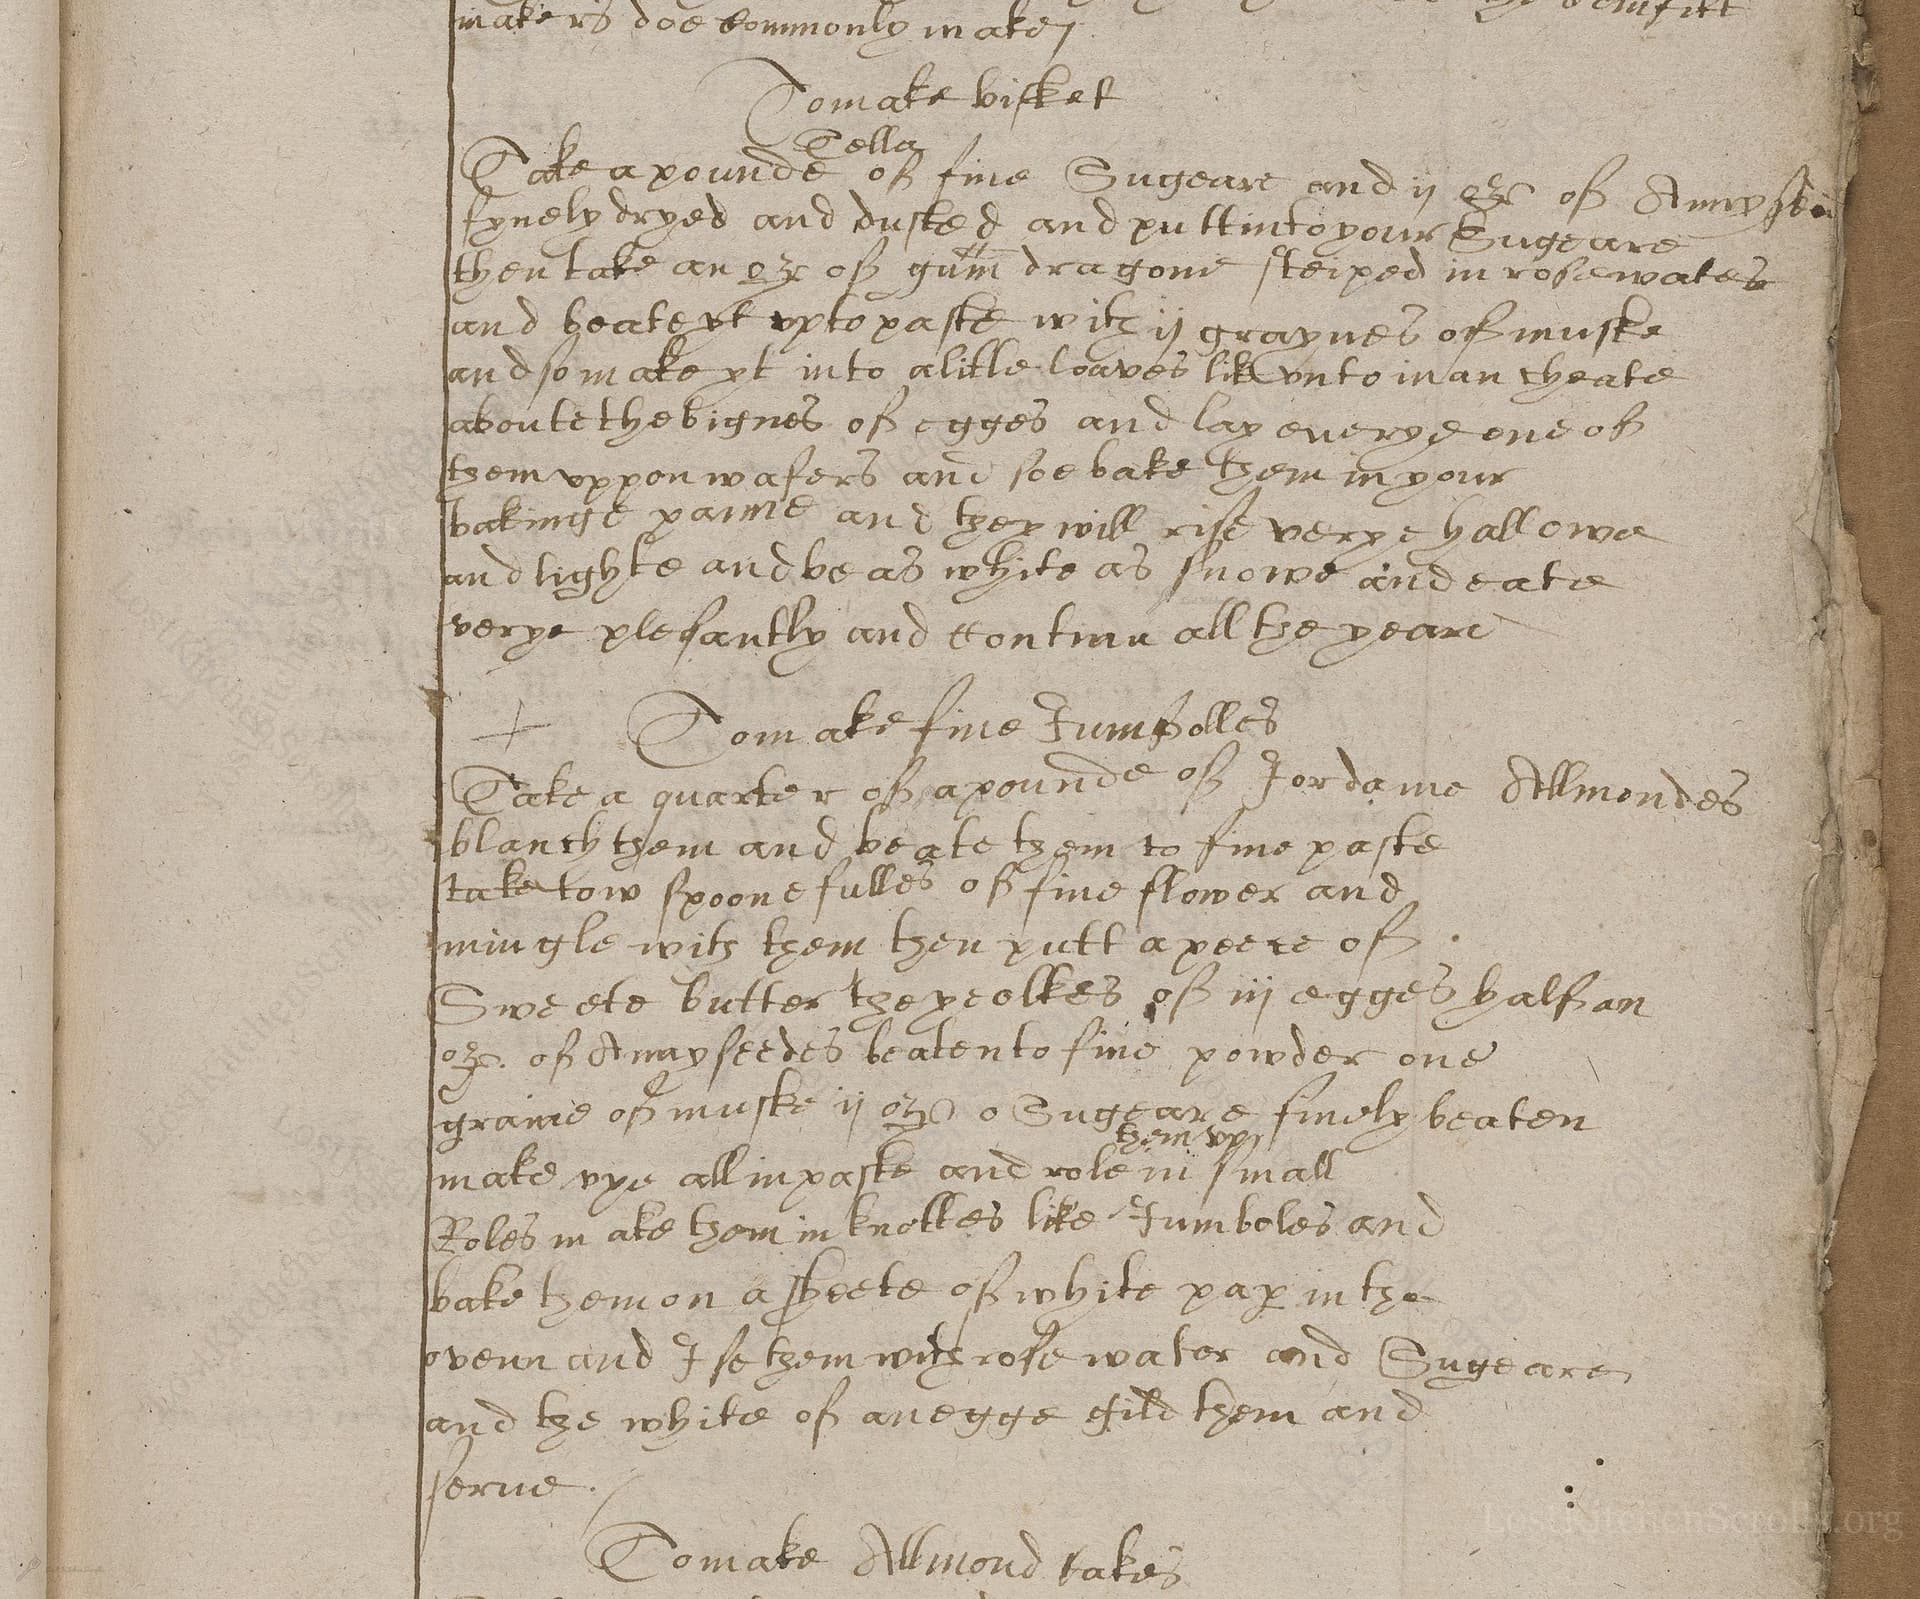 makers doe Commonly make
To make bisket
Tella
Take a pounde of fine Sugeare and ij oz of
fynely dryed and dusted and putt into your Sugeare
then take an oz of gum dragone steiped in rosewater
and beate yt vp to paste with ij graynes of muske
and so make yt into a litle loaves like vnto mancheate
aboute the bignes of egges and lay euerye one of
them vppon wafers and soe bake them in your
bakinge panne and they will rise verye hallowe
and lighte and be as white as snowe and eate
verye plesantly and Continu all the yeare
+ To make fine Jumbolles
Take a quarter of a pounde of Jordaine Allmondes
blanch them and beate them to fine paste
take tow spoonefulles of fine flower and
mingle with them then putt a peece of
Sweete butter the yeolkes of iij egges half an
oz. of Annyseedes beaten to fine powder one
graine of muske ij oz o Sugeare finely beaten
them vp
make vpe all in paste and role in small
Roles make them in knottes like Jumboles and
bake them on a sheete of white pap in the
ovenn and Ise them with rose water and Sugeare
and the white of an egge gild them and
serue.
To make Allmond Cakes
LostKitchenScrolls.org